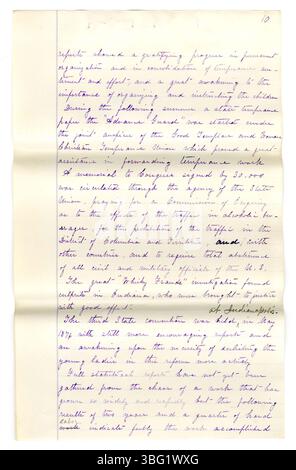 10.
reports showed a gratifying progress in permanent
organization and in consolidation of temperance sen-
timent and effort, and a great awakening to the
importance of organizing and instructing the children
During the following summer a state temperance
paper the "Advance Guard" was started under
the joint auspices of the Good Templar and Woman
Christian Temperance Union which proved a great
assistance in forwarding temperance work
A memorial to Congress signed by 30,000
was circulated through the agency of the State
Union, praying for a Commission of Inquiry
as to the effects of the traffic in alcoholic be-
verages, for the prohibition of the traffic in the
District of Columbia and Territories, and with
other countries, and to require total abstinence
of all civil and military officials of the U.S.
The great "Whisky Frauds" investigation found
culprits in Indiana, who were brought to justice
with good effect.
at Indianapolis.
The third State convention was held, in May
1876 with still more encouraging reports and
an awakening upon the necessity of enlisting the
young ladies in the reform more actively
Full statistical reports have not yet been
gathered from the chaos of a work that has
grown so widely and rapidly but the following
results of two years and a quarter of hard
labor
work indicate partly the work accomplished
alamy
Image ID: 3BG1WXG
www.alamy.com